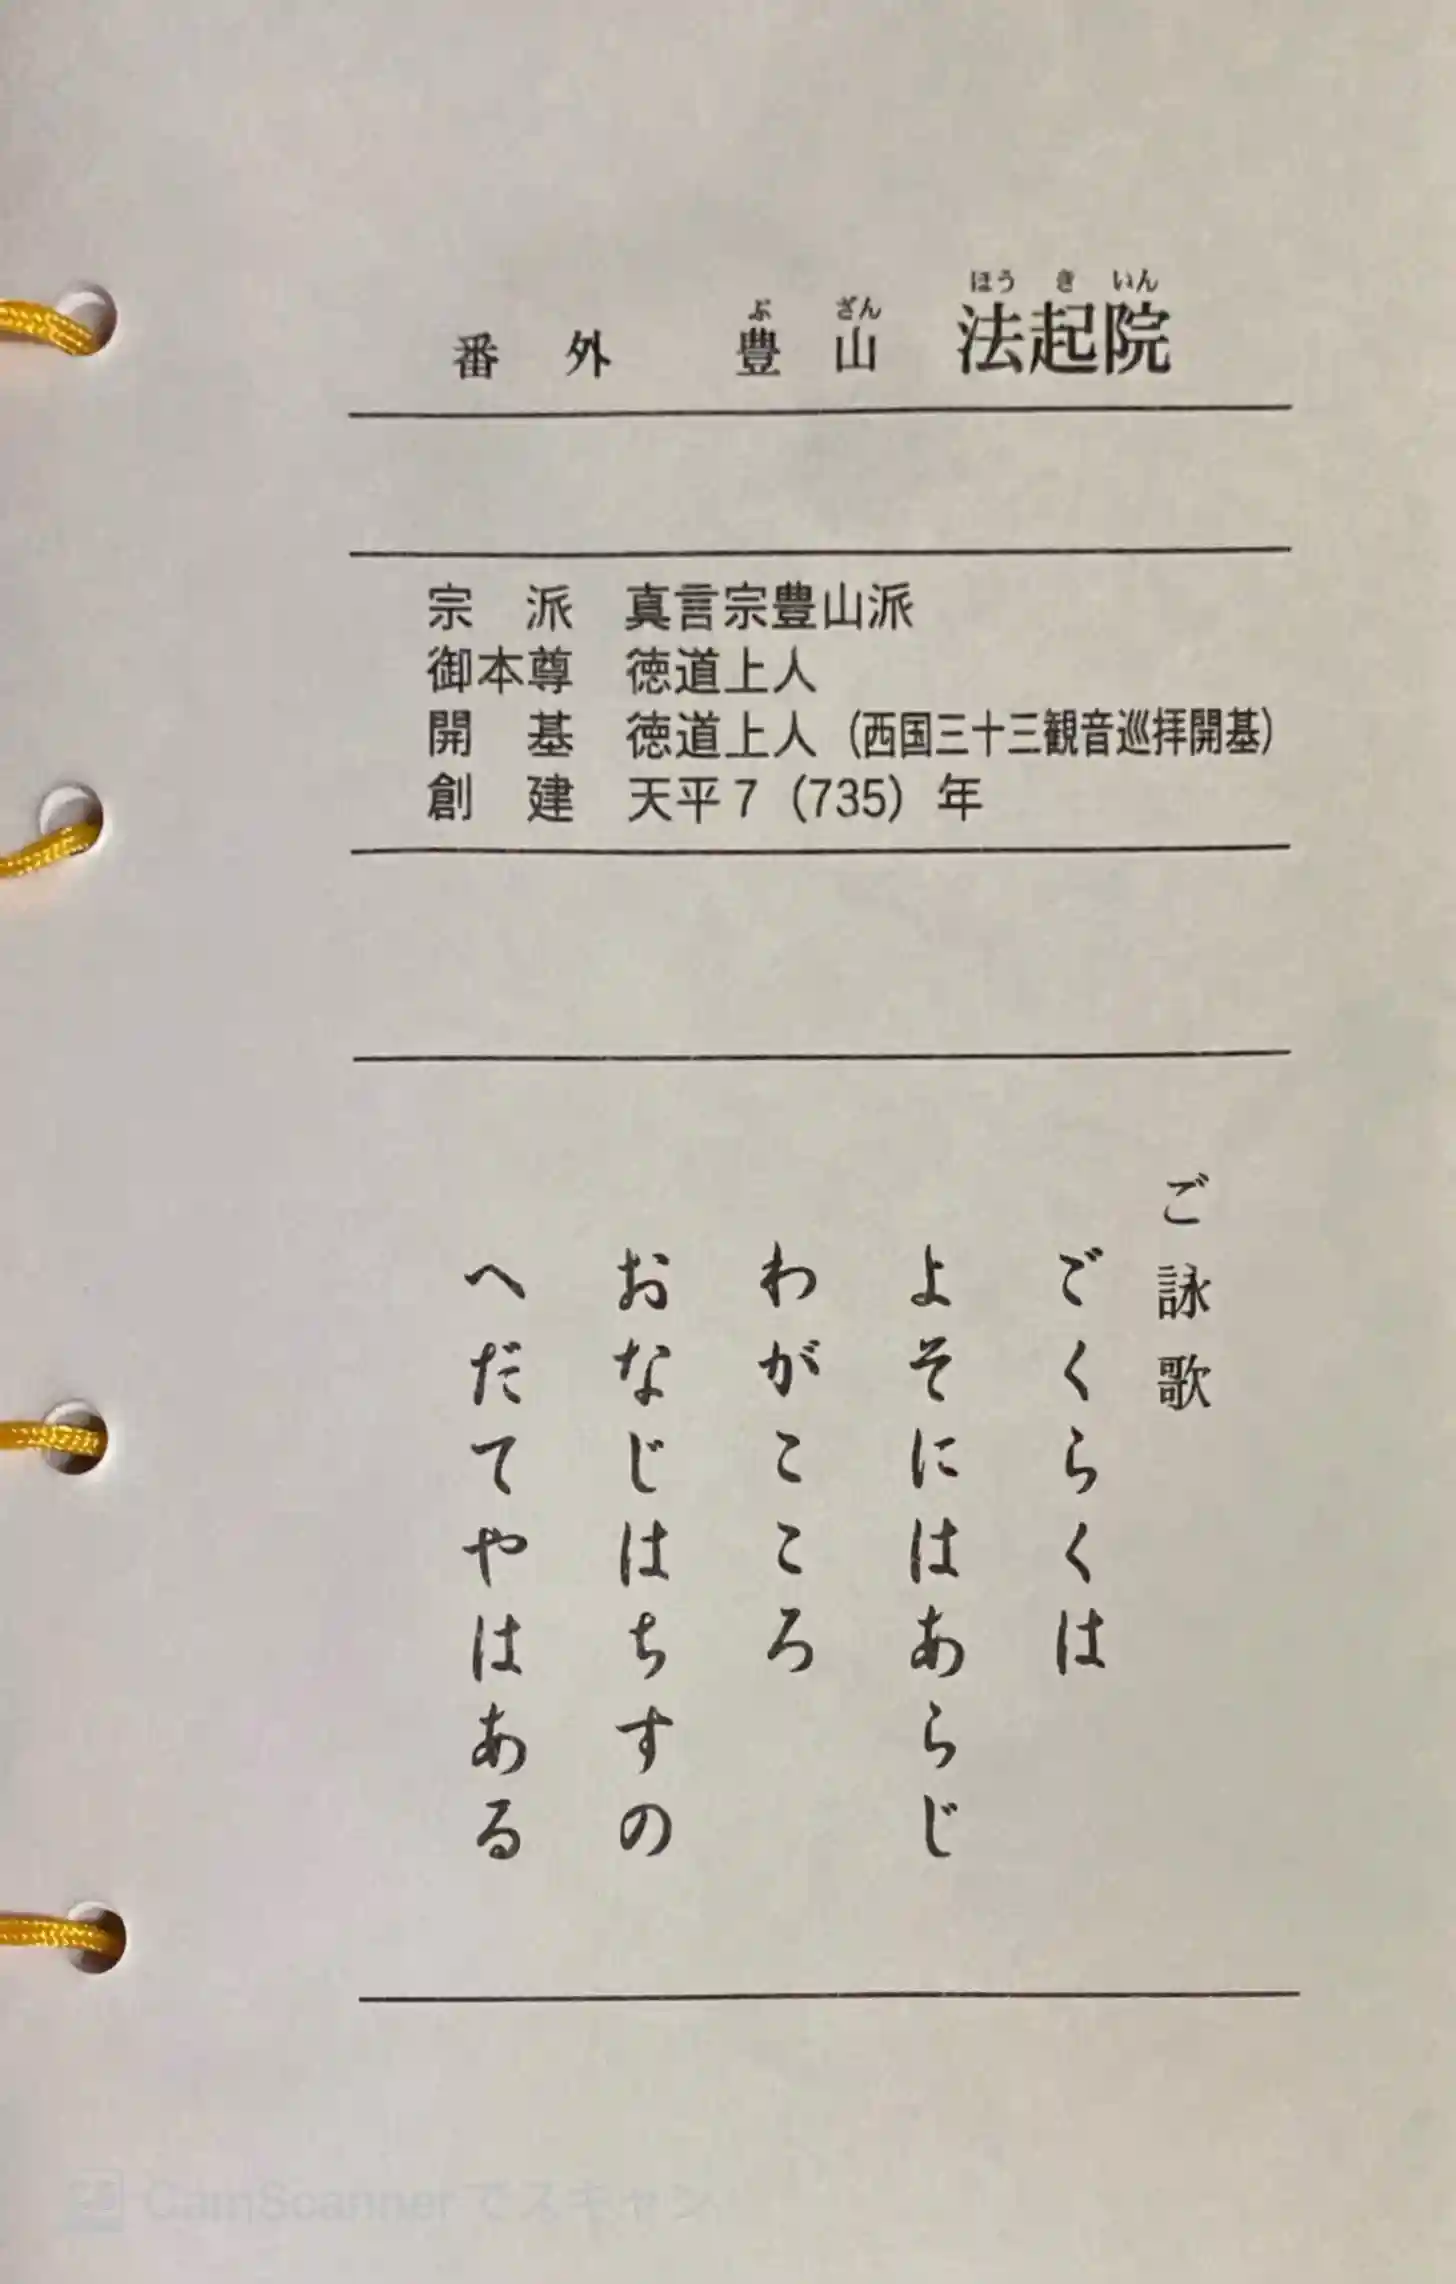 ほうきいん
ぶざん
番外 豊山 法起院
宗派 真言宗豊山派
御本尊 徳道上人
開基 徳道上人（西国三十三観音巡拝開基）
創建 天平7（735）年
ご詠歌
ごくらくは
よそにはあらじ
わがこころ
おなじはちすの
へだてやはある
CS CamScannerでスキャン